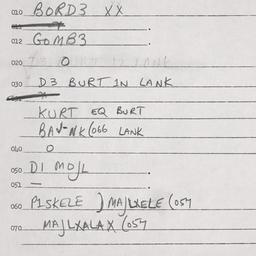 010 BORD3 XX
011
012 GOMB3
020 0
030 D3 BURT IN LANK
KURT EQ BURT
BAJ-NK(066 LANK
040 0
050 DI MOJL
051 —
060 PISKELE ) MAJLXELE (057
070 MAJLXALAX (057